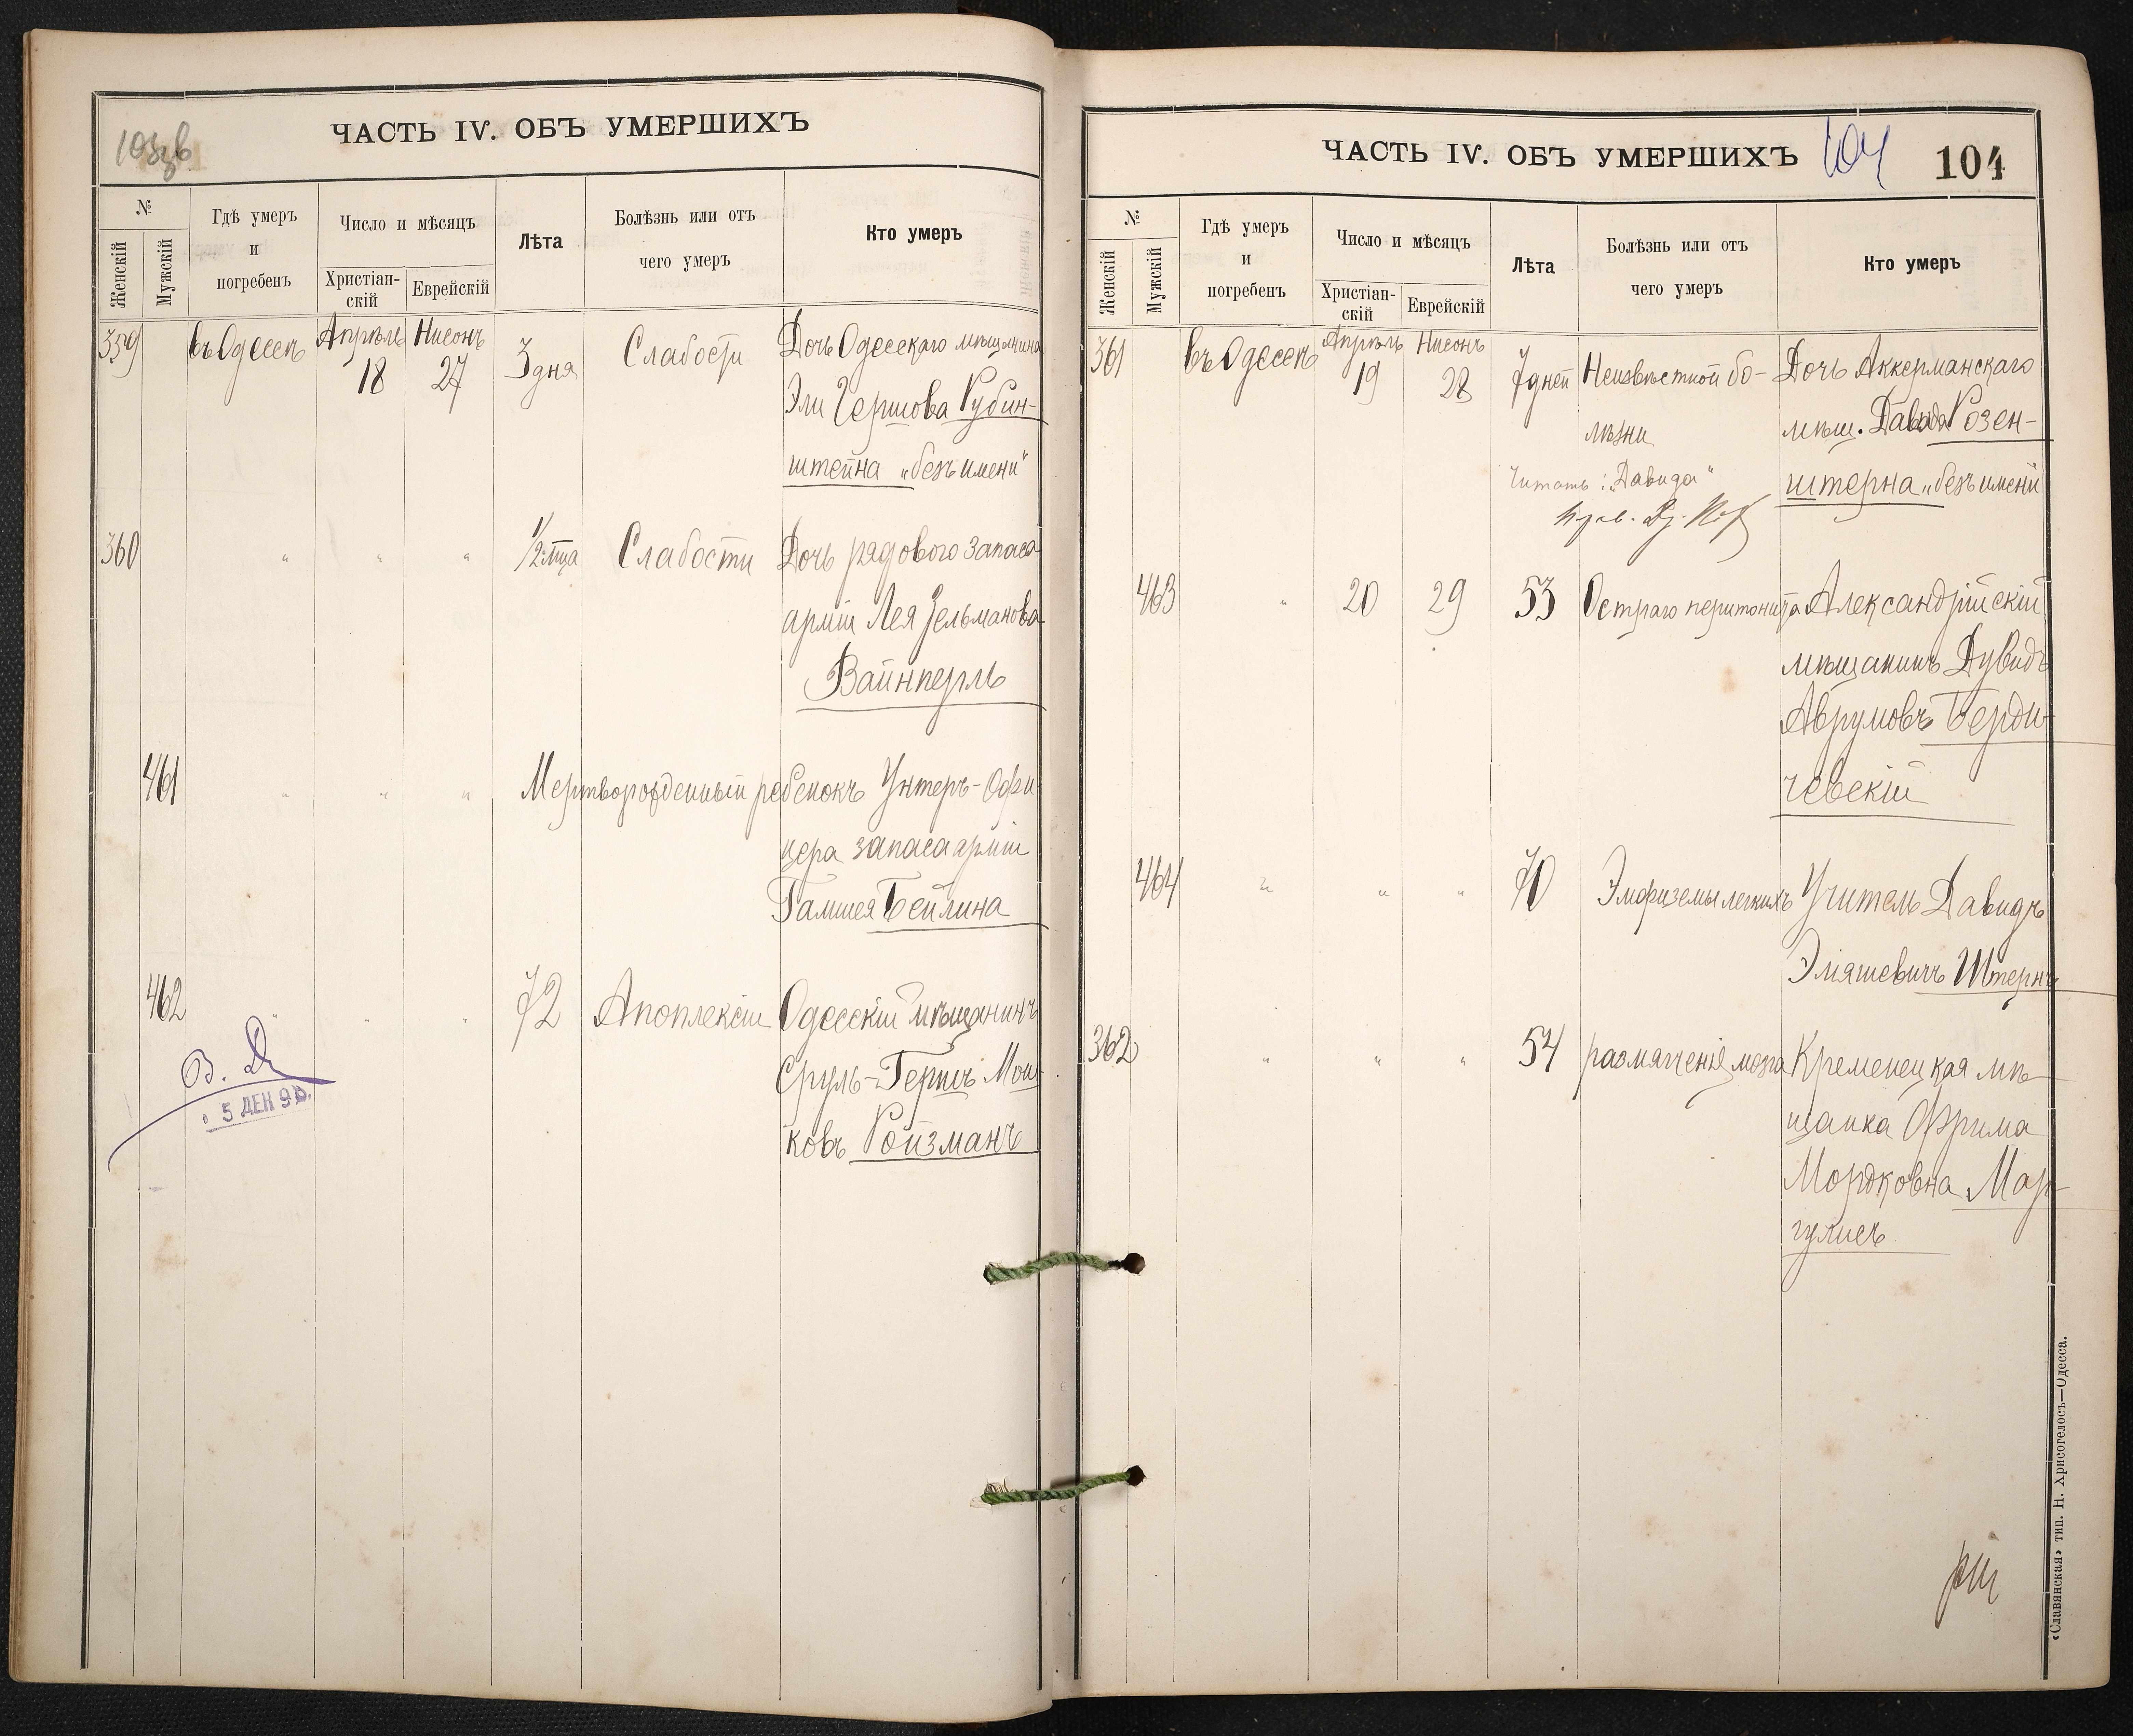 ЧАСТЬ IV. ОБЪ УМЕРШИХЪ
№
Женскій
Мужскій
Гдѣ умеръ
и
погребенъ
Число и мѣсяцъ
Христіан-
скій
Еврейскій
Лѣта
Болѣзнь или отъ
чего умеръ
Кто умеръ
359 въ Одессѣ Апрѣль 18 Нисонъ 27 3 дня Слабости Дочь Одесскаго мѣщанина
Эли Гершова Рубин-
штейна „безъ имени“
360 " " " 1/2 м-ца Слабости Дочь рядового запаса
арміи Лея Зельманова
Вайнперль
461 " " " Мертворожденный ребенокъ Унтеръ-Офи-
цера запаса арміи
Бейлина
462 " " " 72 Апоплексіи Одесскій мѣщанинъ
Сруль-Гершъ Мош-
ковъ Ройзманъ
5 ДЕК 9
ЧАСТЬ IV. ОБЪ УМЕРШИХЪ 104 104
№
Женскій
Мужскій
Гдѣ умеръ
и
погребенъ
Число и мѣсяцъ
Христіан-
скій
Еврейскій
Лѣта
Болѣзнь или отъ
чего умеръ
Кто умеръ
361 въ Одессѣ Апрѣль 19 Нисонъ 28 7 дней Неизвѣстной бо- Дочь Аккерманскаго
лѣзни мѣщ. Давида Розен-
Читать: „Давида“ штерна „безъ имени
463 " 20 29 53 Остраго перитонита Александрійскій
мѣщанинъ Дувидъ
Аврумовъ Берди-
чевскій
464 " " " 70 Эмфиземы легкихъ Учитель Давидъ
Эліяшевичъ Штернъ
362 " " " 54 размягченія мозга Кременецкая мѣ-
щанка Фрима
Мордковна Мар-
гулисъ
«Славянская» тип. Н. Хрисогелосъ—Одесса.